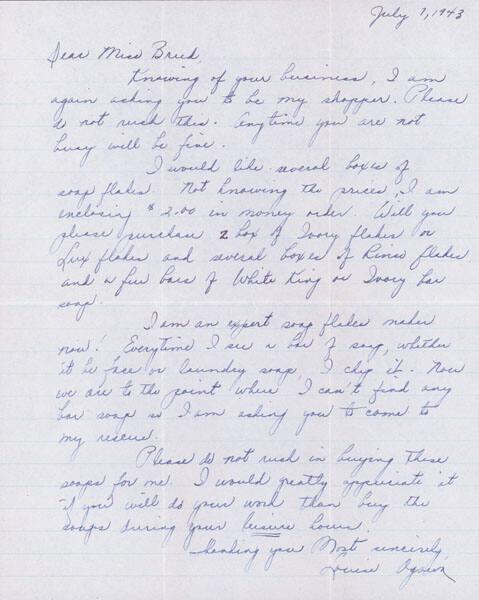 July 7, 1943
Dear Miss Breed,
Knowing of your business, I am
again asking you to be my shopper. Please
do not rush this. Anytime you are not
busy will be fine.
I would like several boxes of
soap flakes. Not knowing the prices, I am
enclosing $2.00 in money order. Will you
please purchase 2 box of Ivory flakes or
Lux flakes and several boxes of Rinso flakes
and a few bars of White King or Ivory bar
soap.
I am an expert soap flakes maker
now! Everytime I see a bar of soap, whether
it be face or laundry soap, I chip it. Now
we are to the point where I can't find any
bar soap so I am asking you to come to
my rescue.
Please do not rush in buying these
soaps for me. I would greatly appreciate it
if you will do your work than buy the
soaps during your leisure hours.
Thanking you Most sincerely,
Louise Ogawa